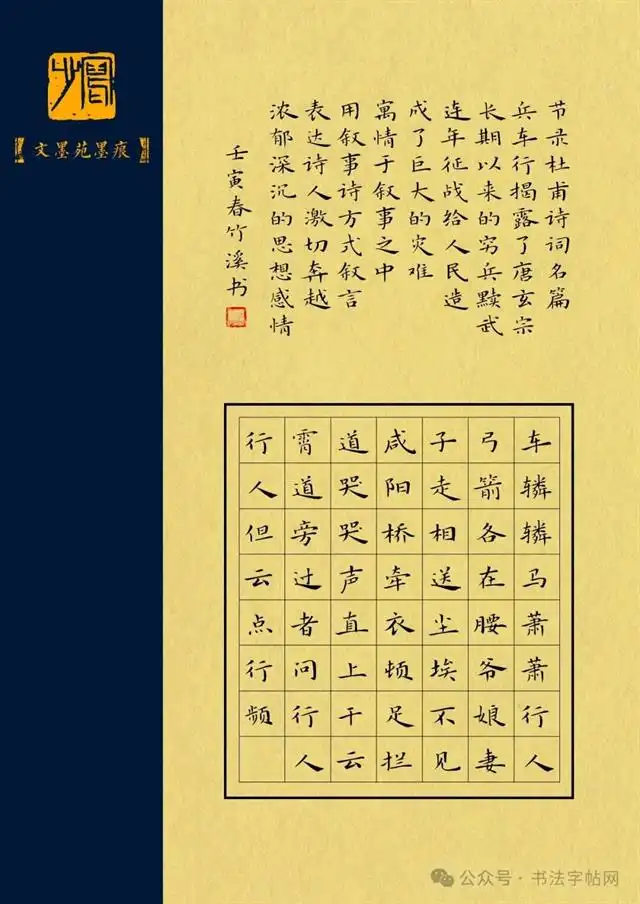 【文墨苑墨痕】
节录杜甫诗词名篇
兵车行揭露了唐玄宗
长期以来的穷兵黩武
连年征战给人民造
成了巨大的灾难
寓情于叙事之中
用叙事诗方式叙言
表达诗人激切奔越
浓郁深沉的思想感情
壬寅春竹溪书
车辚辚马萧萧行人
弓箭各在腰爷娘妻
子走相送尘埃不见
咸阳桥牵衣顿足拦
道哭哭声直上干云
霄道旁过者问行人
行人但云点行频
公众号·书法字帖网